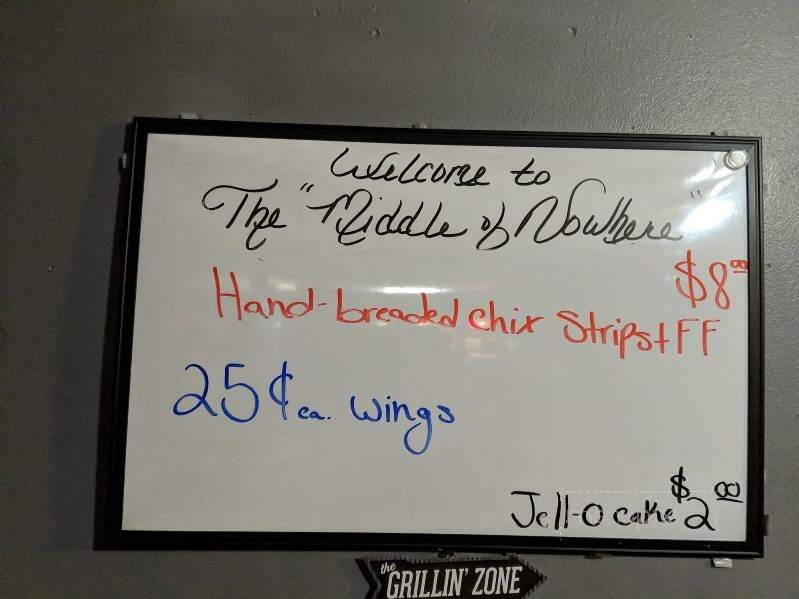 Welcome to
The "Middle of Nowhere"
$8.00
Hand-breaded chix Strips + FF
25¢ ea. wings
Jell-O cake $2.00
the
GRILLIN' ZONE